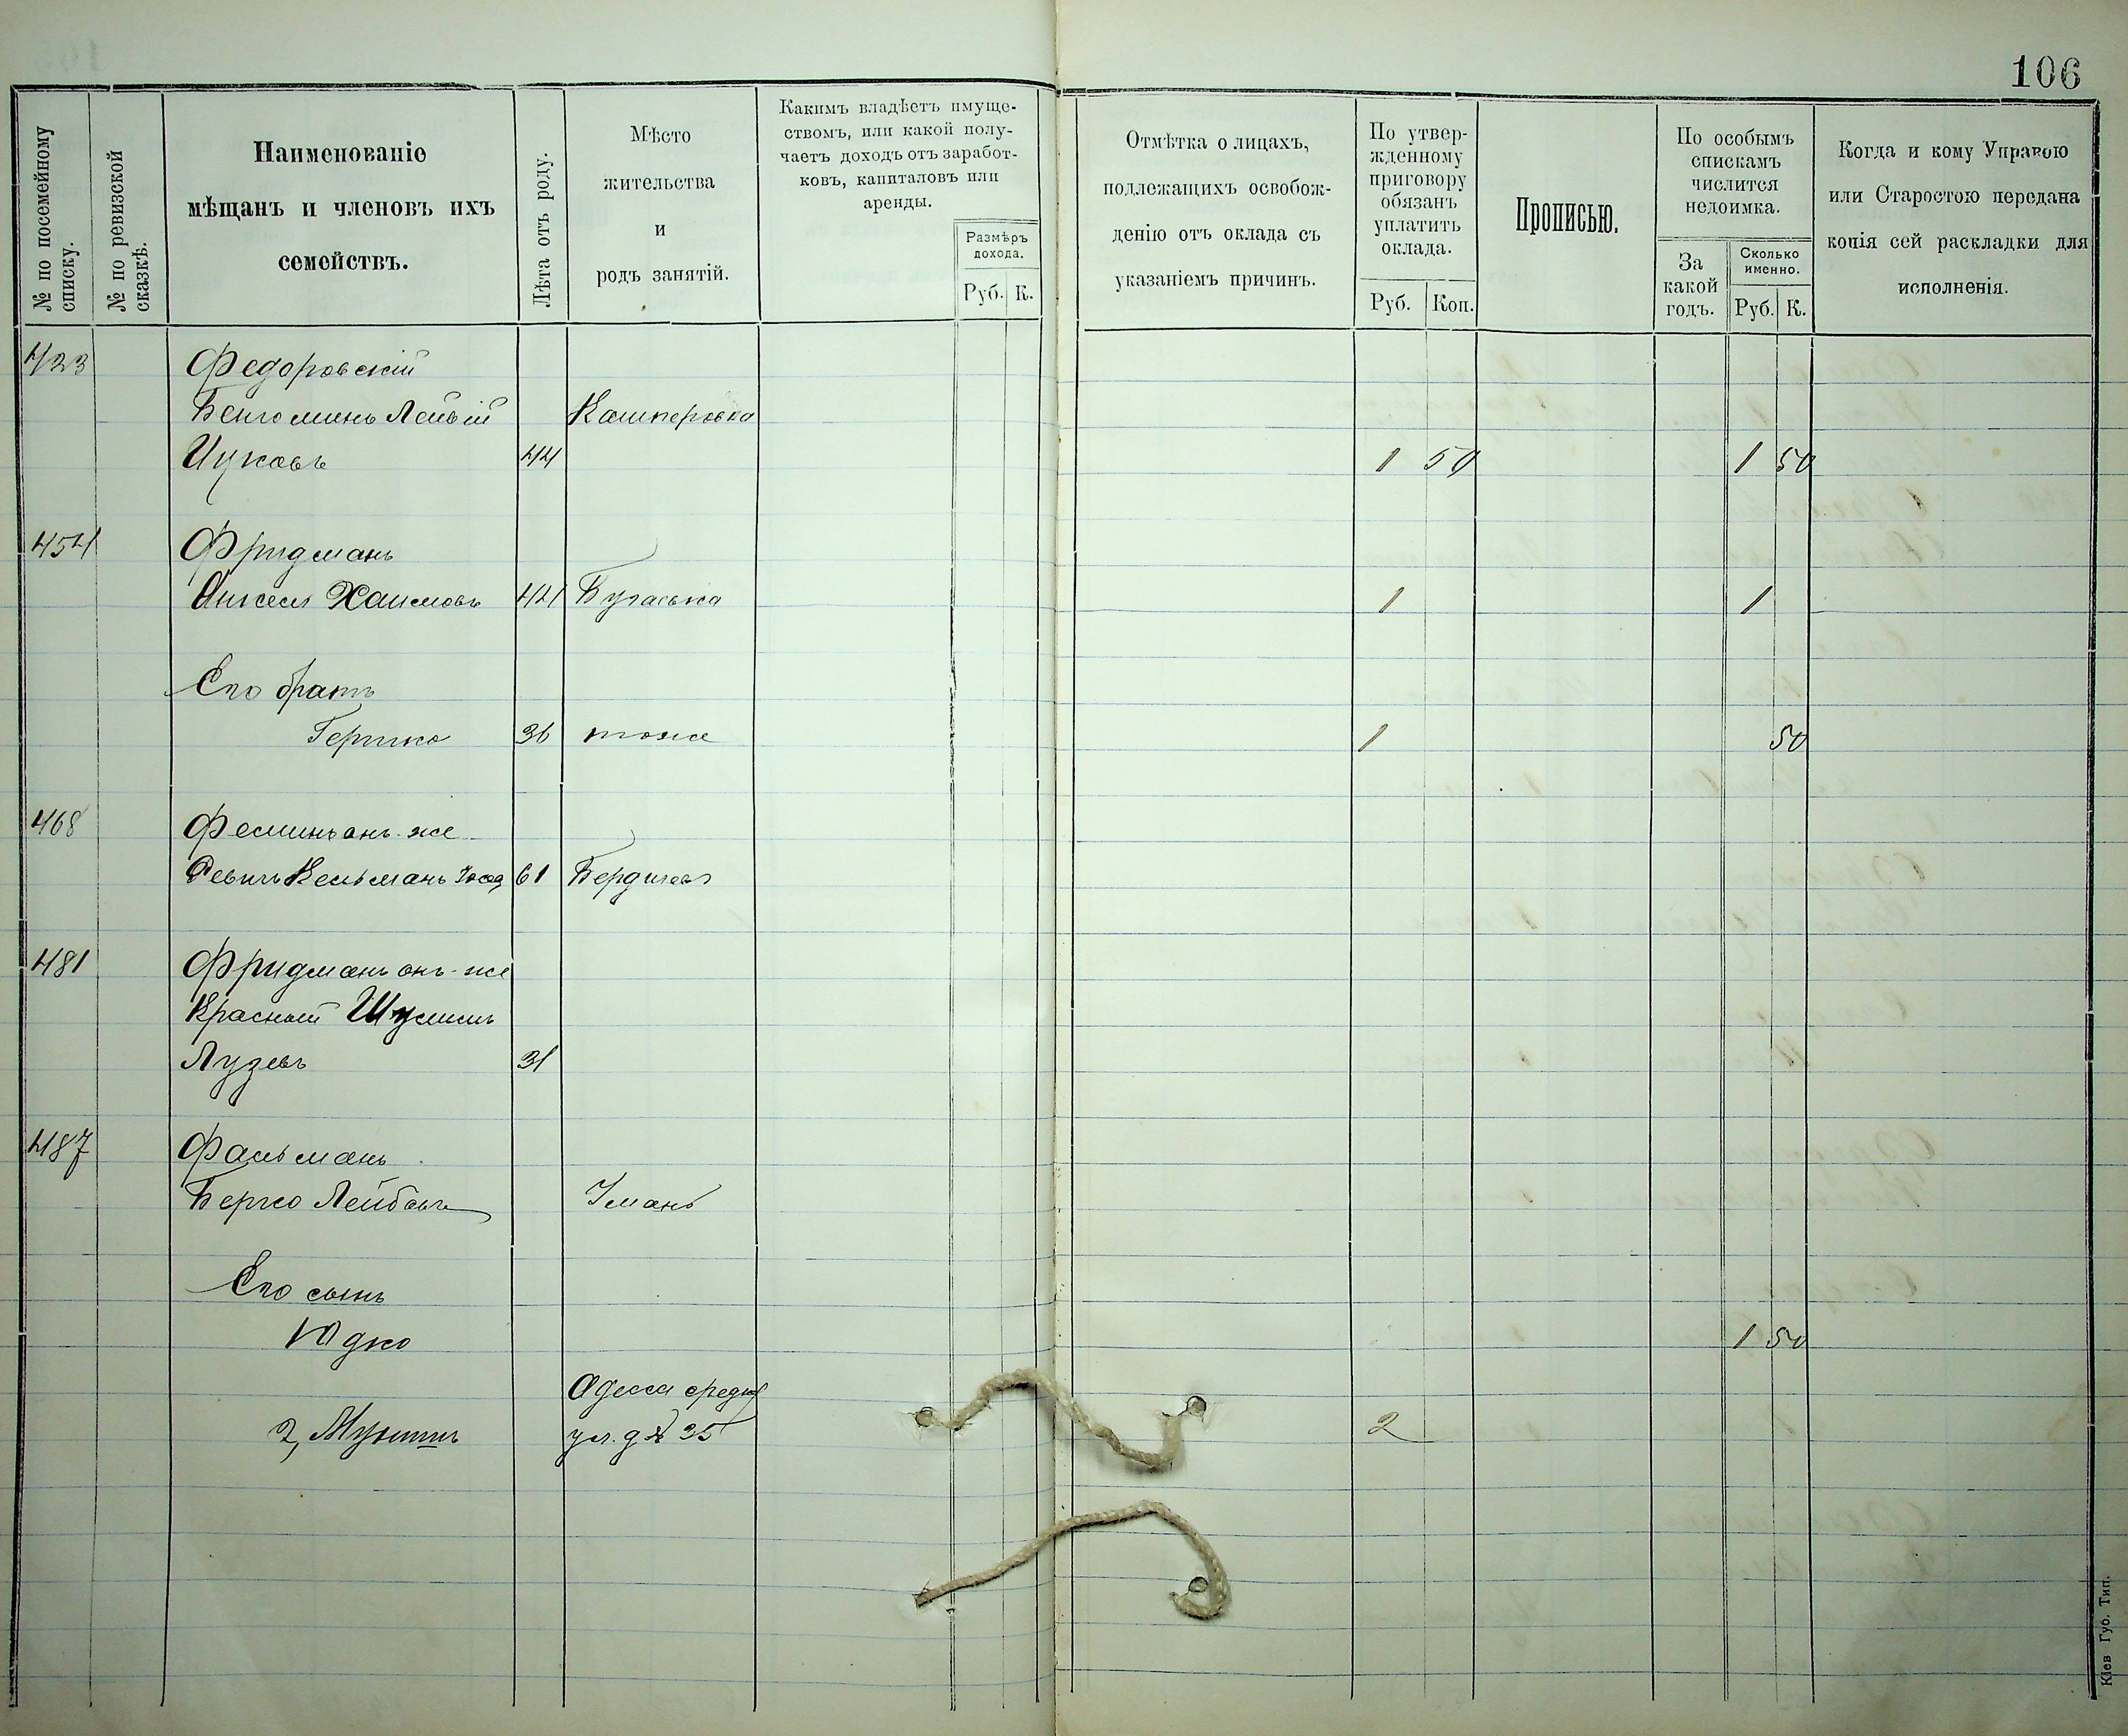 106
№ по посемейному списку.
№ по ревизской сказкѣ.
Наименованіе
мѣщанъ и членовъ ихъ
семействъ.
Лѣта отъ роду.
Мѣсто
жительства
и
родъ занятій.
Какимъ владѣетъ имуще-
ствомъ, или какой полу-
чаетъ доходъ отъ заработ-
ковъ, капиталовъ или
аренды.
Размѣръ
дохода.
Руб. К.
Отмѣтка о лицахъ,
подлежащихъ освобож-
денію отъ оклада съ
указаніемъ причинъ.
По утвер-
жденному
приговору
обязанъ
уплатить
оклада.
Руб. Коп.
Прописью.
По особымъ
спискамъ
числится
недоимка.
За
какой
годъ.
Сколько
именно.
Руб. К.
Когда и кому Управою
или Старостою передана
копія сей раскладки для
исполненія.
423 Федоровскій
Кашперовка
44 1 50 1 50
454 Фридманъ
Хаимовъ 44 1 1
Его братъ
Гершко 36 тоже 1 50
468 онъ-же
Кельманъ 61 Бердичевъ
481 Фридманъ онъ-же
Красный
Лузевъ 31
487 Фальманъ
Берко Лейбовъ Умань
Его сынъ
Юдко 1 50
Одесса
2, ул. д № 35 2
Кіев Губ. Тип.